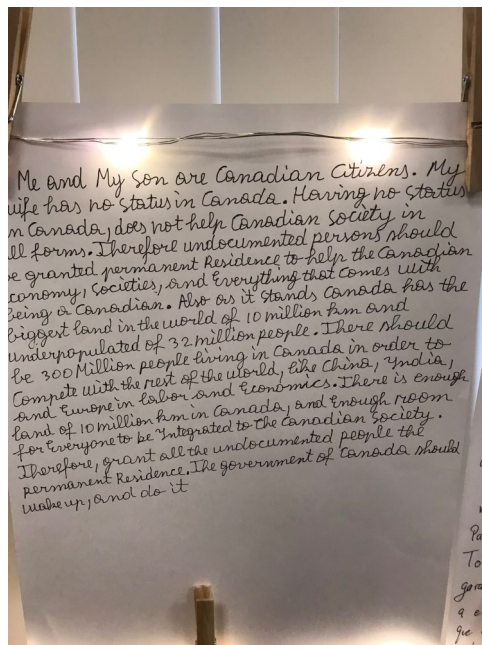 Me and My Son are Canadian Citizens. My
wife has no status in Canada. Having no status
in Canada, does not help Canadian Society in
all forms. Therefore undocumented persons should
be granted permanent Residence to help the Canadian
economy, Societies, and Everything that comes with
being a Canadian. Also as it stands Canada has the
biggest land in the world of 10 million km and
underpopulated of 32 million people. There should
be 300 Million people living in Canada in order to
Compete with the rest of the world, like China, India,
and Europe in labor and Economics. There is enough
land of 10 million km in Canada, and Enough room
for Everyone to be Integrated to the Canadian Society.
Therefore, grant all the undocumented people the
permanent Residence. The government of Canada should
wake up, and do it
Pa
To
gara
a e
que